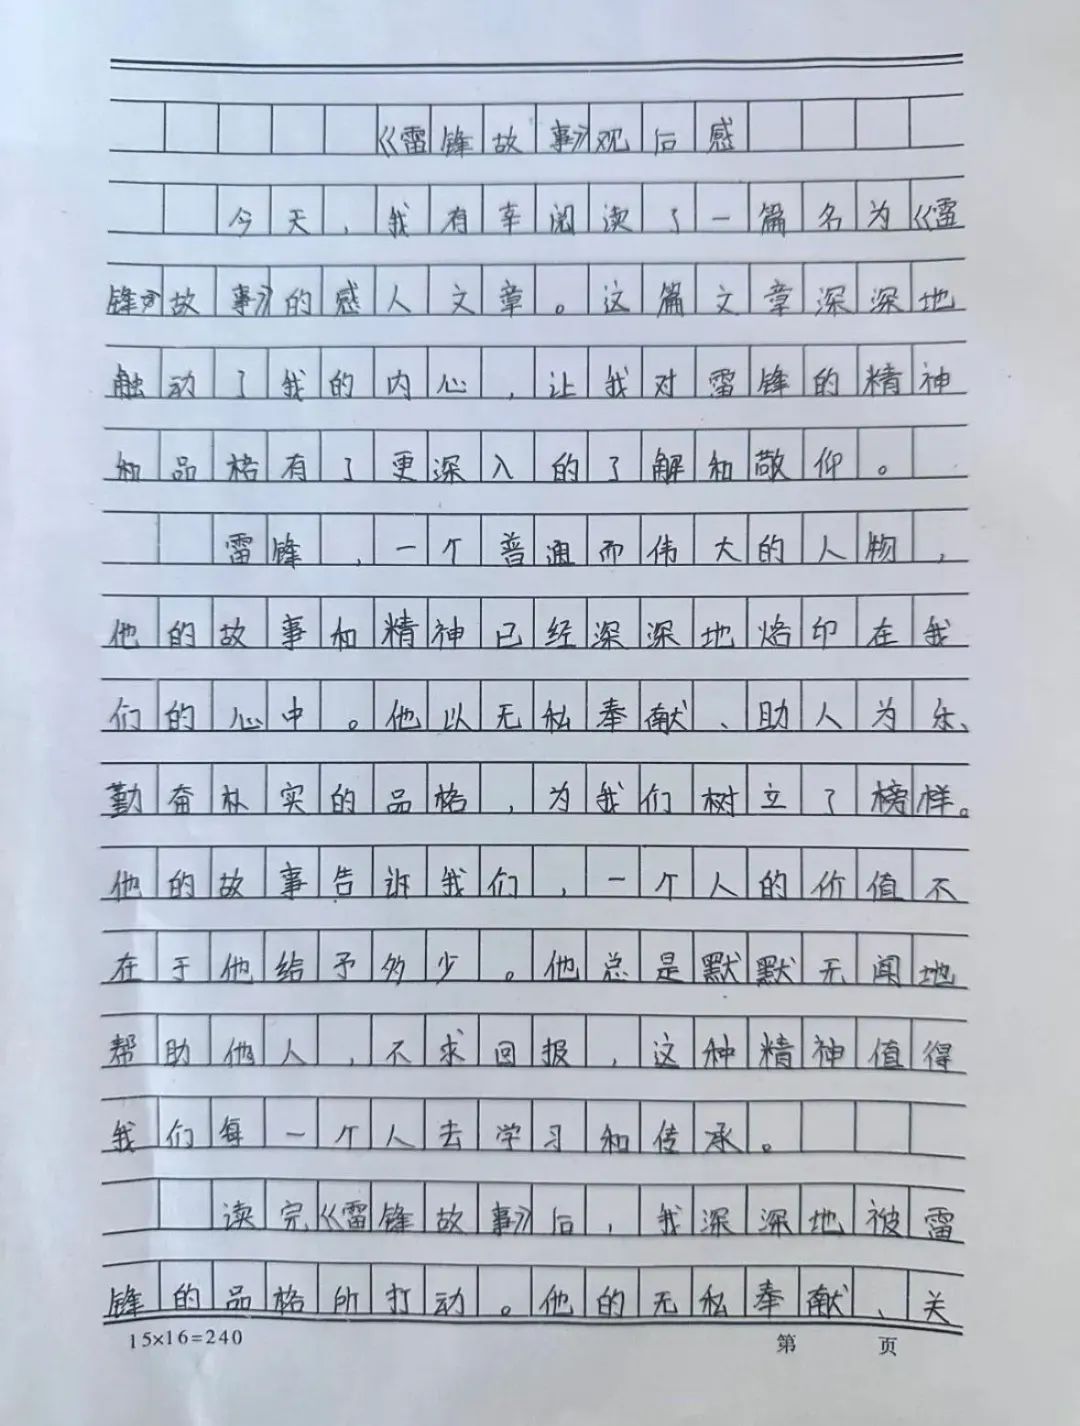 《雷锋故事》观后感
今天,我有幸阅读了一篇名为《雷
锋故事》的感人文章。这篇文章深深地
触动了我的内心,让我对雷锋的精神
和品格有了更深入的了解和敬仰。
雷锋,一个普通而伟大的人物,
他的故事和精神已经深深地烙印在我
们的心中。他以无私奉献、助人为乐、
勤奋朴实的品格,为我们树立了榜样。
他的故事告诉我们,一个人的价值不
在于他给予多少。他总是默默无闻地
帮助他人,不求回报,这种精神值得
我们每一个人去学习和传承。
读完《雷锋故事》后,我深深地被雷
锋的品格所打动。他的无私奉献、关
15×16=240 第 页